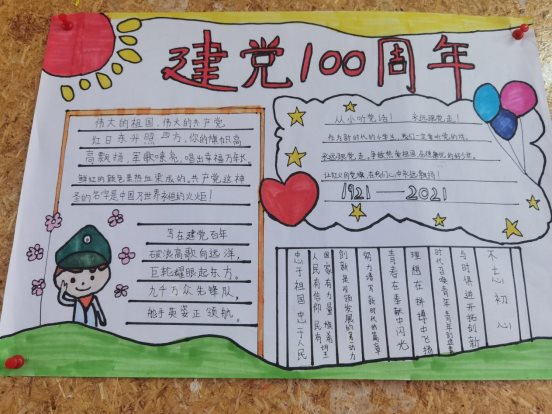 建党100周年
伟大的祖国,伟大的共产党
红日东升照四方,你的旗帜高
高飘扬,军歌嘹亮,唱出幸福万年长,
鲜红的颜色是热血染成的。共产党这神
圣的名字是中国万世永恒的火炬!
写在建党百年
破浪高歌向远洋,
巨轮耀眼起东方。
九千万众先锋队,
舵手英姿正领航。
从小听党话! 永远跟党走!
作为新时代的小学生,我们一定要听党的话,
永远跟党走,争做热爱祖国
让红火的党旗,在我们心中永远飘扬!
1921——2021
不忘初心
与时俱进开拓创新
时代召唤青年
理想在拼搏中飞扬
青春在奉献中闪光
努力谱写新时代的篇章
创新是引领发展的第一动力
人民有信仰 民有
国家有力量
忠于祖国 忠于人民